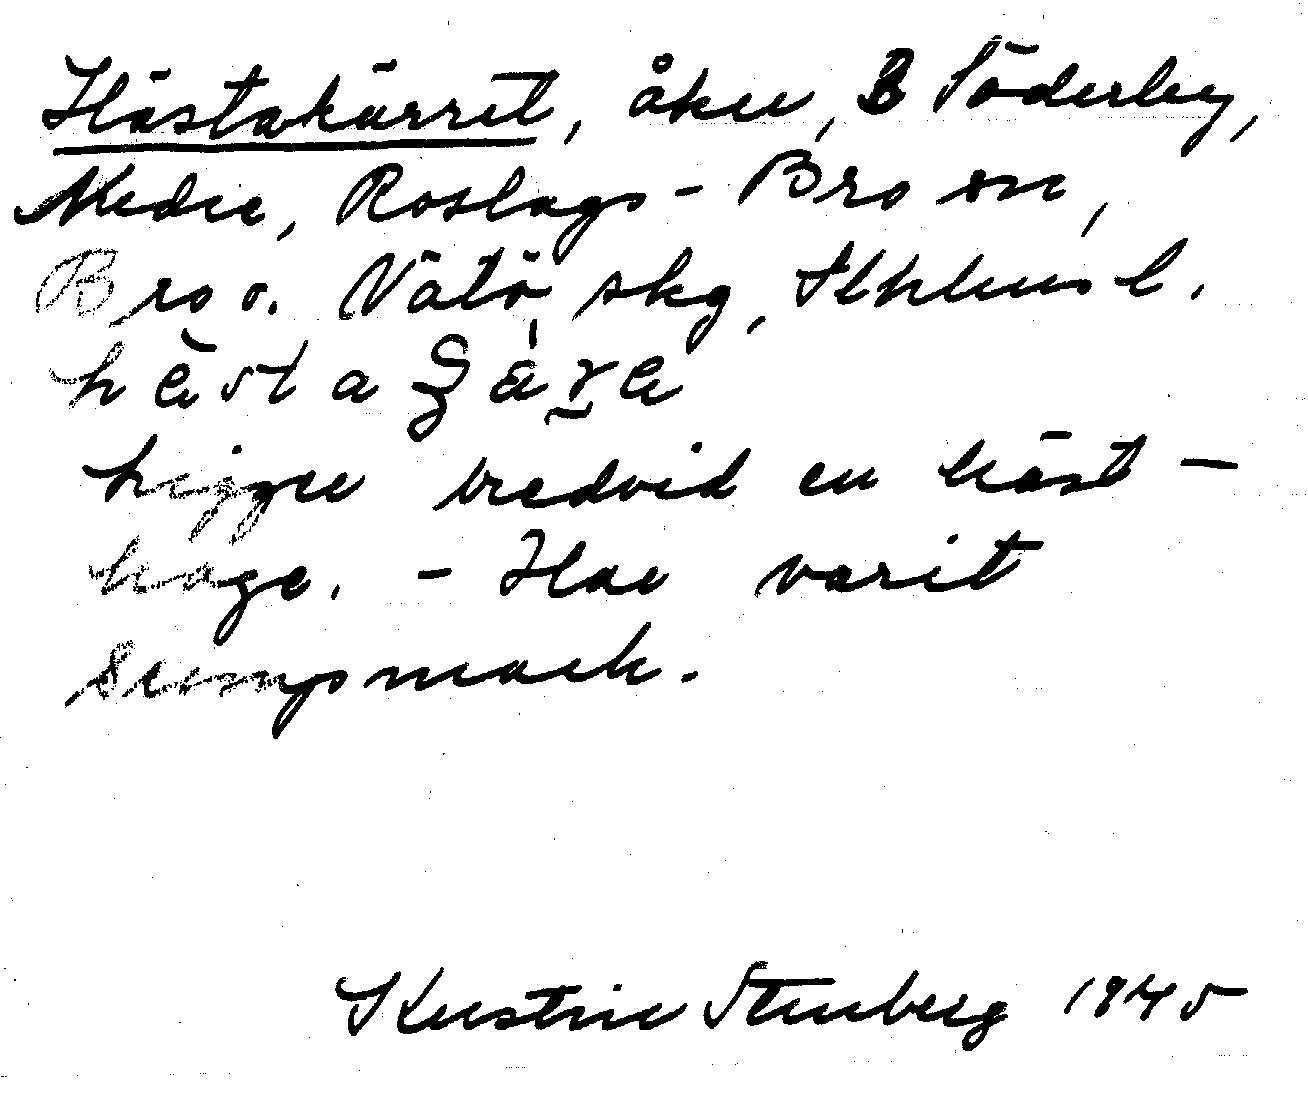 Hästakärret, åker, B Söderby,
Nedre, Roslags-Bro sn,
Bro o. Vätö skg, Sthlms l.
hästa
ligger bredvid en häst-
hage. - Har varit
sumpmark.
Kerstin Stenberg 1945